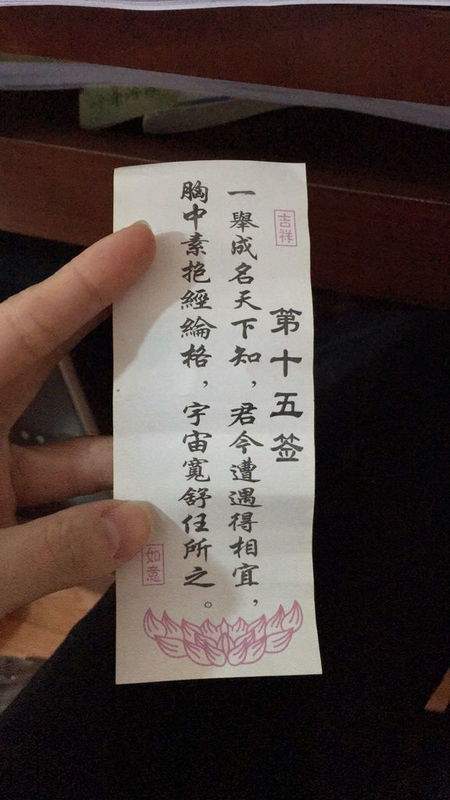 吉祥
第十五签
一舉成名天下知，君今遭遇得相宜，
胸中素抱經綸格，宇宙寬舒任所之。
如意